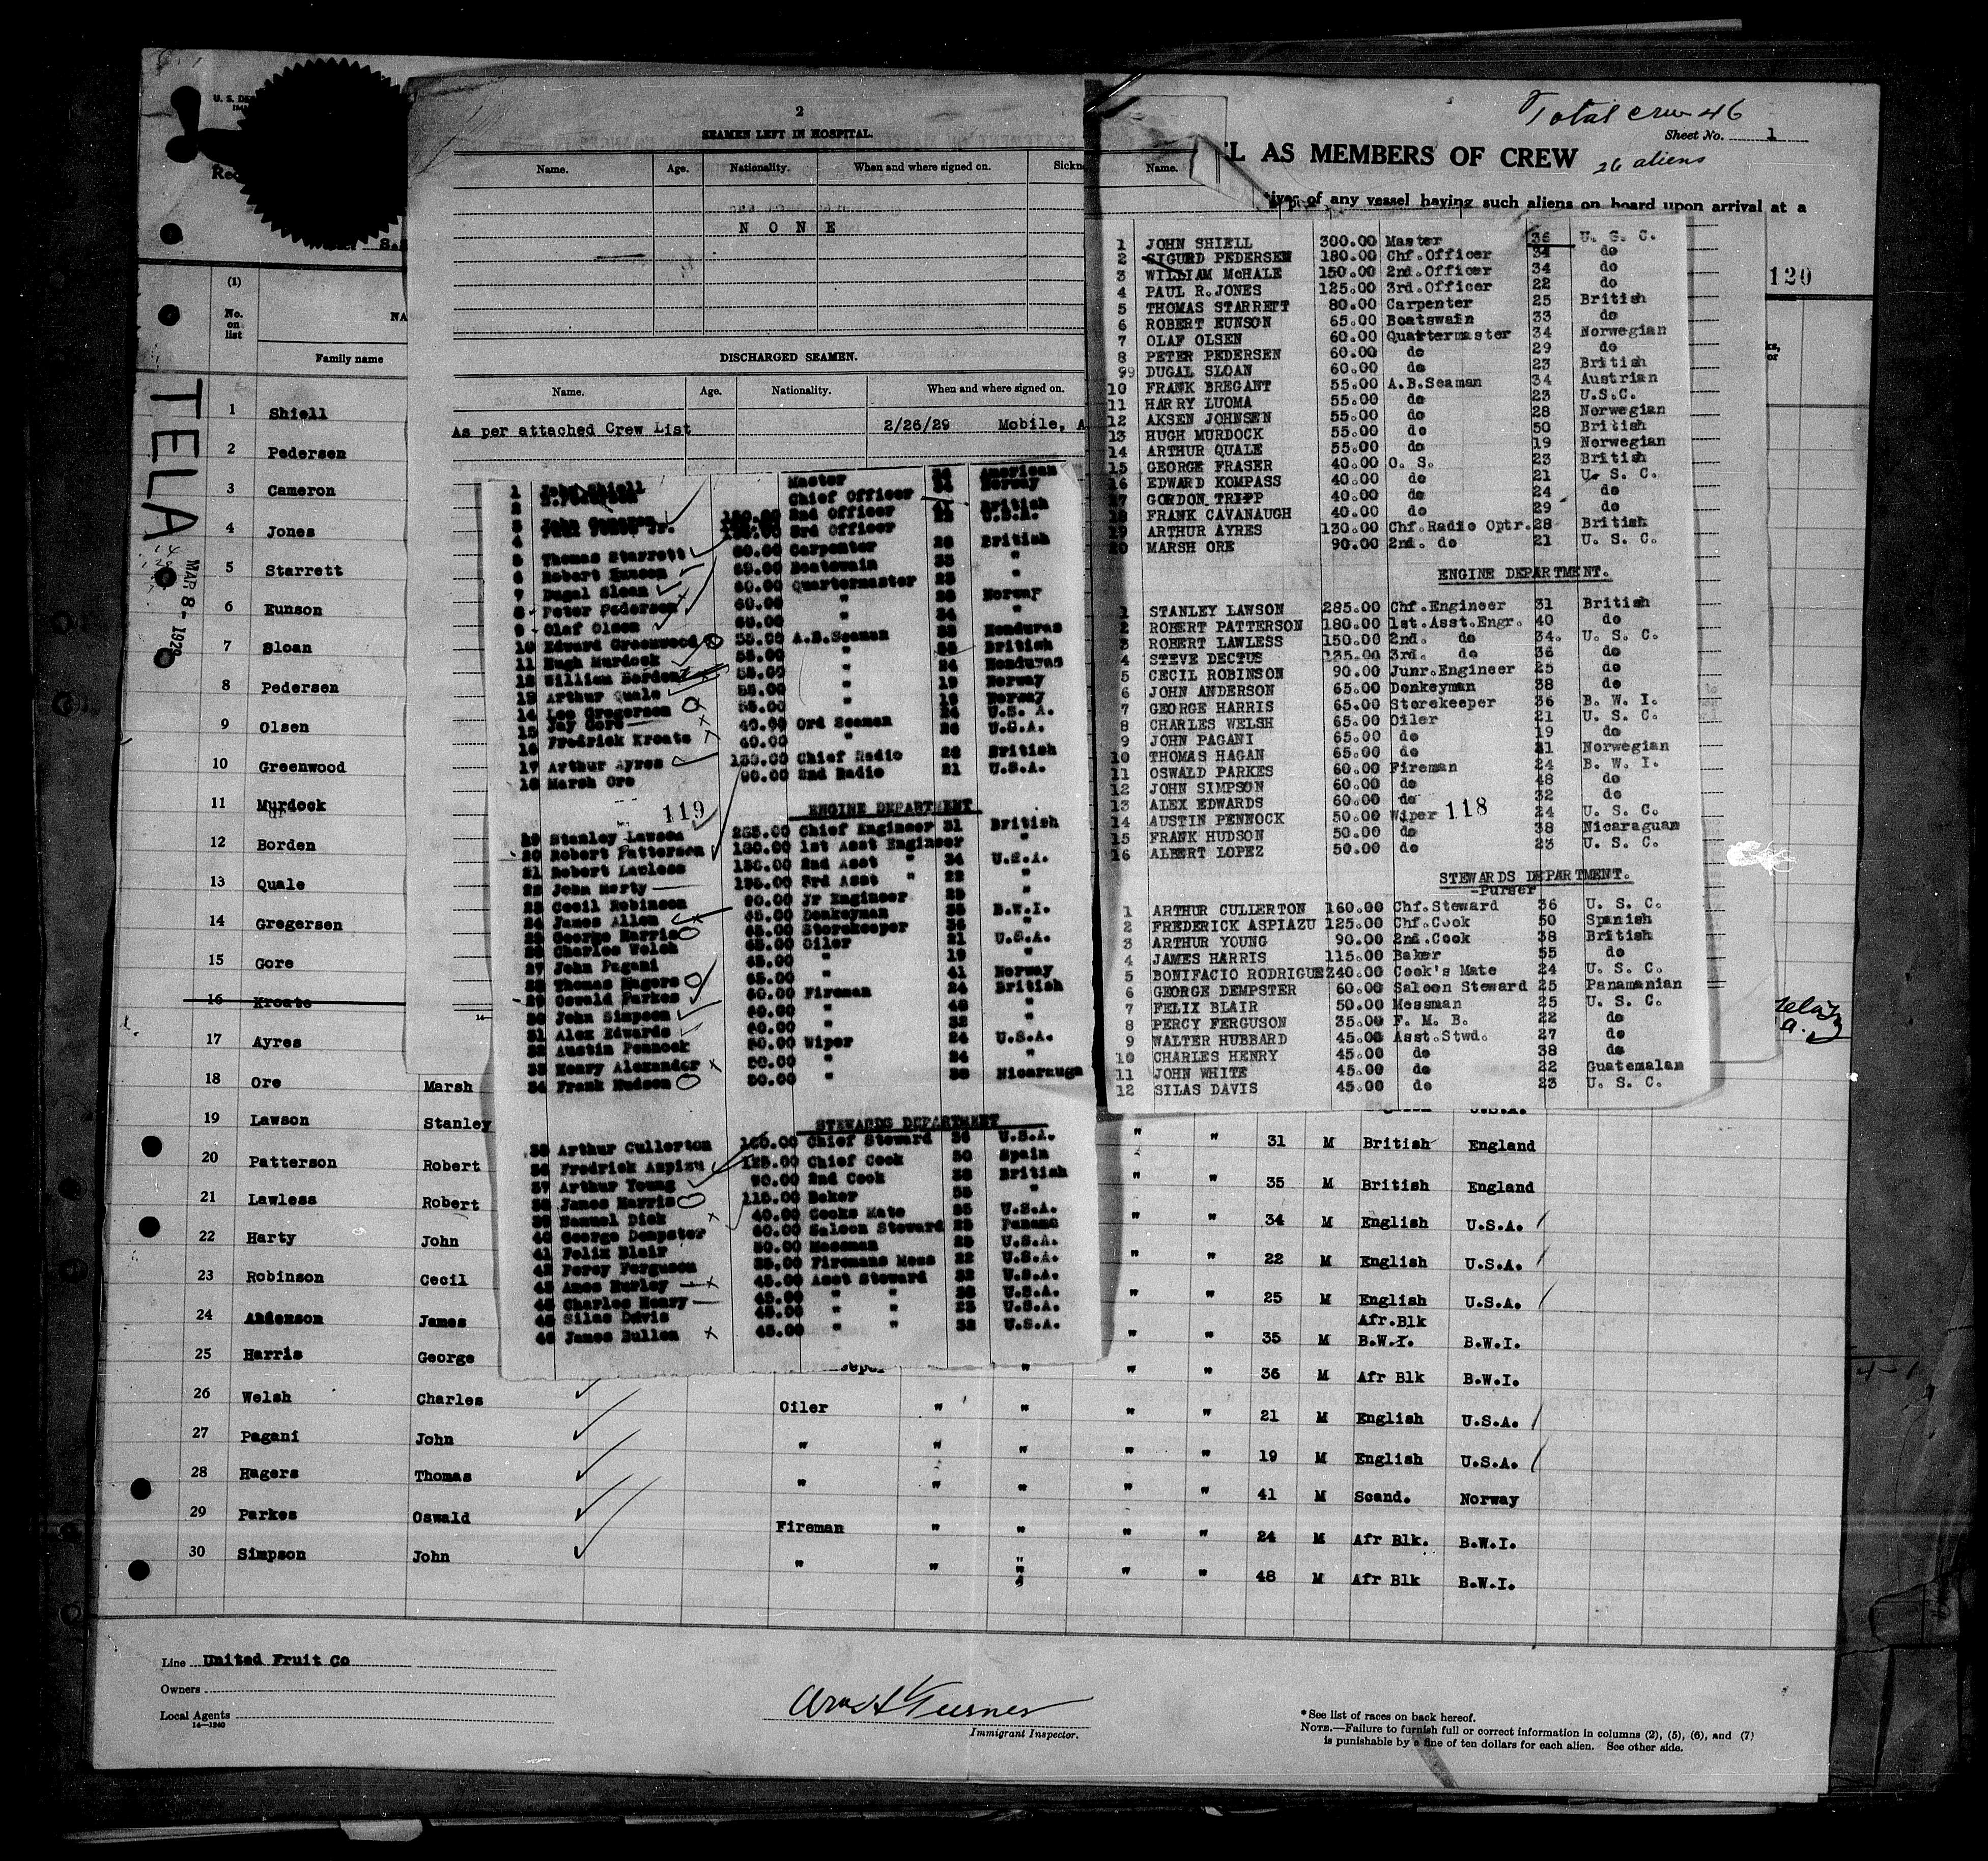 Total crew 46
Sheet No. 1
L AS MEMBERS OF CREW
26 aliens
of any vessel having such aliens on board upon arrival at a
120
U. S. DE
Rec
(1)
No. on list
NA
Family name
TELA
MAR 8 - 1929
1 Shiell
2 Pedersen
3 Cameron
4 Jones
5 Starrett
6 Eunson
7 Sloan
8 Pedersen
9 Olsen
10 Greenwood
11 Murdock
12 Borden
13 Quale
14 Gregersen
15 Gore
16 Kroate
17 Ayres
18 Ore Marsh
19 Lawson Stanley " " 31 M British England
20 Patterson Robert " " 35 M British England
21 Lawless Robert " " 34 M English U.S.A.
22 Harty John " " 22 M English U.S.A.
23 Robinson Cecil " " 25 M English U.S.A.
24 Anderson James " " 35 M Afr.Blk B.W.I. B.W.I.
25 Harris George " " " 36 M Afr Blk B.W.I.
26 Welsh Charles Oiler " " " " 21 M English U.S.A.
27 Pagani John " " " " " 19 M English U.S.A.
28 Hagers Thomas " " " " " 41 M Scand. Norway
29 Parkes Oswald Fireman " " " " 24 M Afr Blk. B.W.I.
30 Simpson John " " " " " 48 M Afr Blk B.W.I.
Line United Fruit Co
Owners
Local Agents
14—1240
Immigrant Inspector.
* See list of races on back hereof.
NOTE.—Failure to furnish full or correct information in columns (2), (5), (6), and (7)
is punishable by a fine of ten dollars for each alien. See other side.
2
SEAMEN LEFT IN HOSPITAL.
Name. Age. Nationality. When and where signed on. Sickn
Name.
N O N E
DISCHARGED SEAMEN.
Name. Age. Nationality. When and where signed on.
As per attached Crew List 2/26/29 Mobile, A
1 John Shiell Master 36 American
2 Chief Officer 34 Norway
3 2nd Officer 41 British
4 3rd Officer 22 U.S.A.
5 Thomas Starrett 80.00 Carpenter 26 British
6 Robert Eunson 65.00 Boatswain 33 "
7 Dugal Sloan 60.00 Quartermaster 23 "
8 Peter Pedersen 60.00 " Norway
9 Olaf Olsen 60.00 " 34 "
10 Edward Greenwood 55.00 A.B.Seaman Honduras
11 Hugh Murdock 55.00 " British
12 William Borden 55.00 " 24 Honduras
13 Arthur Quale 55.00 " 19 Norway
14 Leo Gregersen 55.00 " Norway
15 Jay Gore 40.00 Ord Seaman 24 U.S.A.
16 Fredrick Kroate 40.00 " U.S.A.
17 Arthur Ayres 130.00 Chief Radio 28 British
18 Marsh Ore 90.00 2nd Radio 21 U.S.A.
119
ENGINE DEPARTMENT
19 Stanley Lawson 285.00 Chief Engineer 31 British
20 Robert Patterson 180.00 1st Asst Engineer "
21 Robert Lawless 150.00 2nd Asst " 34 U.S.A.
22 John Harty 135.00 3rd Asst " 22 "
23 Cecil Robinson 90.00 Jr Engineer 25 "
24 James Allen 65.00 Donkeyman 35 B.W.I.
25 George Harris 65.00 Storekeeper 36 "
26 Charles Welsh 65.00 Oiler 21 U.S.A.
27 John Pagani 65.00 " 19 "
28 Thomas Hagers 65.00 " 41 Norway
29 Oswald Parkes 60.00 Fireman 24 British
30 John Simpson 60.00 " 48 "
31 Alex Edwards 60.00 " 32 "
32 Austin Pennock 50.00 Wiper 24 U.S.A.
33 Henry Alexander 50.00 " 24 "
34 Frank Hudson 50.00 " 38 Nicaragua
STEWARDS DEPARTMENT
35 Arthur Cullerton 160.00 Chief Steward 36 U.S.A.
36 Fredrick Aspizu 125.00 Chief Cook 50 Spain
37 Arthur Young 90.00 2nd Cook 38 British
38 James Harris 115.00 Baker 55 "
39 Samuel Dick 40.00 Cooks Mate 25 U.S.A.
40 George Dempster 60.00 Saloon Steward 25 Panama
41 Felix Blair 50.00 Messman 25 U.S.A.
42 Percy Ferguson 35.00 Firemans Mess 22 U.S.A.
43 Amos Hurley 45.00 Asst Steward 32 U.S.A.
44 Charles Henry 45.00 " " 38 U.S.A.
45 Silas Davis 45.00 " " 23 U.S.A.
46 James Bullen 45.00 " " 32 U.S.A.
1 JOHN SHIELL 300.00 Master 36 U. S. C.
2 SIGURD PEDERSEN 180.00 Chf.Officer 34 do
3 WILLIAM McHALE 150.00 2nd.Officer 34 do
4 PAUL R.JONES 125.00 3rd.Officer 22 do
5 THOMAS STARRETT 80.00 Carpenter 25 British
6 ROBERT EUNSON 65.00 Boatswain 33 do
7 OLAF OLSEN 60.00 Quartermaster 34 Norwegian
8 PETER PEDERSEN 60.00 do 29 do
99 DUGAL SLOAN 60.00 do 23 British
10 FRANK BREGANT 55.00 A.B.Seaman 34 Austrian
11 HARRY LUOMA 55.00 do 23 U.S.C.
12 AKSEN JOHNSEN 55.00 do 28 Norwegian
13 HUGH MURDOCK 55.00 do 50 British
14 ARTHUR QUALE 55.00 do 19 Norwegian
15 GEORGE FRASER 40.00 O. S. 23 British
16 EDWARD KOMPASS 40.00 do 21 U. S. C.
17 GORDON TRIPP 40.00 do 24 do
18 FRANK CAVANAUGH 40.00 do 29 do
19 ARTHUR AYRES 130.00 Chf.Radio Optr. 28 British
20 MARSH ORE 90.00 2nd. do 21 U. S. C.
ENGINE DEPARTMENT.
1 STANLEY LAWSON 285.00 Chf.Engineer 31 British
2 ROBERT PATTERSON 180.00 1st.Asst.Engr. 40 do
3 ROBERT LAWLESS 150.00 2nd. do 34. U. S. C.
4 STEVE DECTUS 135.00 3rd. do 36 do
5 CECIL ROBINSON 90.00 Junr.Engineer 25 do
6 JOHN ANDERSON 65.00 Donkeyman 38 do
7 GEORGE HARRIS 65.00 Storekeeper 36 B. W. I.
8 CHARLES WELSH 65.00 Oiler 21 U. S. C.
9 JOHN PAGANI 65.00 do 19 do
10 THOMAS HAGAN 65.00 do 41 Norwegian
11 OSWALD PARKES 60.00 Fireman 24 B. W. I.
12 JOHN SIMPSON 60.00 do 48 do
13 ALEX EDWARDS 60.00 do 32 do
14 AUSTIN PENNOCK 50.00 Wiper 24 U. S. C.
15 FRANK HUDSON 50.00 do 38 Nicaraguan
16 ALBERT LOPEZ 50.00 do 23 U. S. C.
118
STEWARDS DEPARTMENT.
-Purser
1 ARTHUR CULLERTON 160.00 Chf.Steward 36 U. S. C.
2 FREDERICK ASPIAZU 125.00 Chf.Cook 50 Spanish
3 ARTHUR YOUNG 90.00 2nd.Cook 38 British
4 JAMES HARRIS 115.00 Baker 55 do
5 BONIFACIO RODRIGUEZ 40.00 Cook's Mate 24 U. S. C.
6 GEORGE DEMPSTER 60.00 Saloon Steward 25 Panamanian
7 FELIX BLAIR 50.00 Messman 25 U. S. C.
8 PERCY FERGUSON 35.00 F. M. B. 22 do
9 WALTER HUBBARD 45.00 Asst.Stwd. 27 do
10 CHARLES HENRY 45.00 do 38 do
11 JOHN WHITE 45.00 do 22 Guatemalan
12 SILAS DAVIS 45.00 do 23 U. S. C.